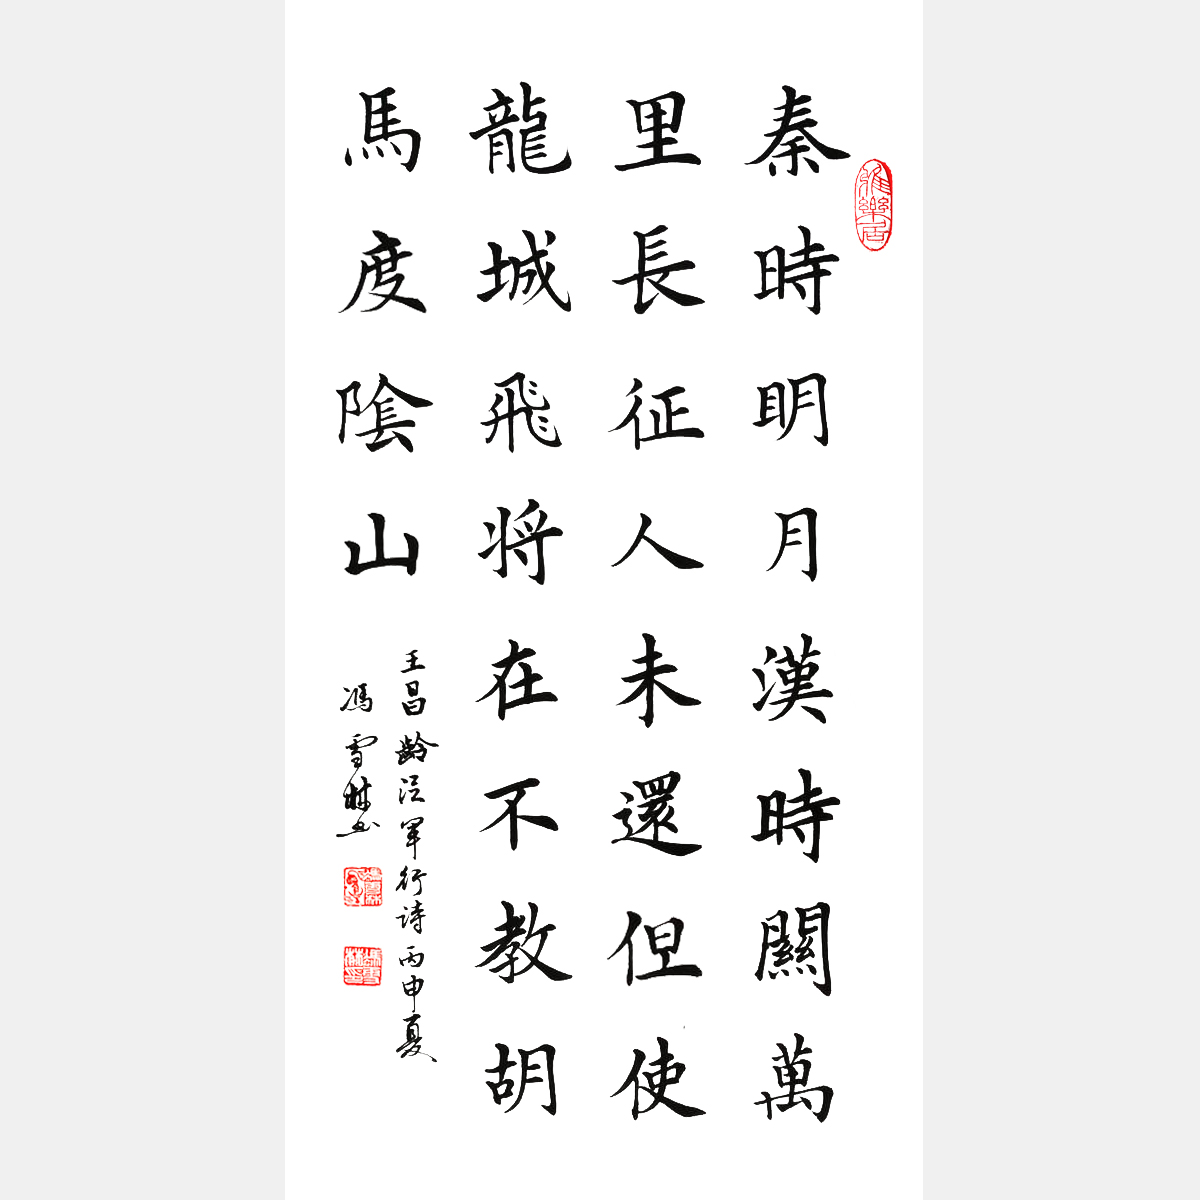 秦時明月漢時關萬
里長征人未還但使
龍城飛将在不教胡
馬度陰山
王昌齡從軍行诗丙申夏
馮雪林书
雅樂居